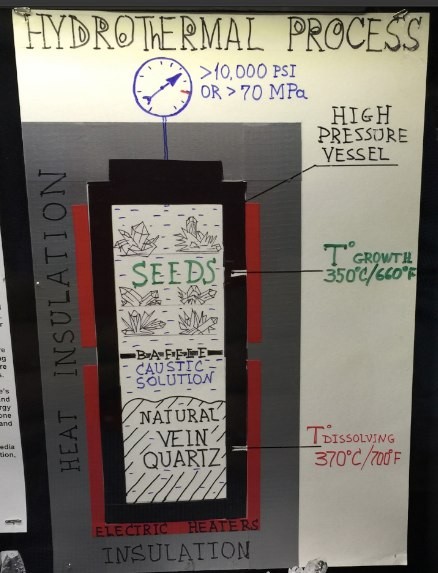 HYDROTHERMAL PROCESS
>10,000 PSI
OR >70 MPa
HIGH
PRESSURE
VESSEL
HEAT INSULATION
SEEDS
T° GROWTH
350°C/660°F
BAFFLE
CAUSTIC
SOLUTION
NATURAL
VEIN
QUARTZ
T° DISSOLVING
370°C/700°F
ELECTRIC HEATERS
INSULATION